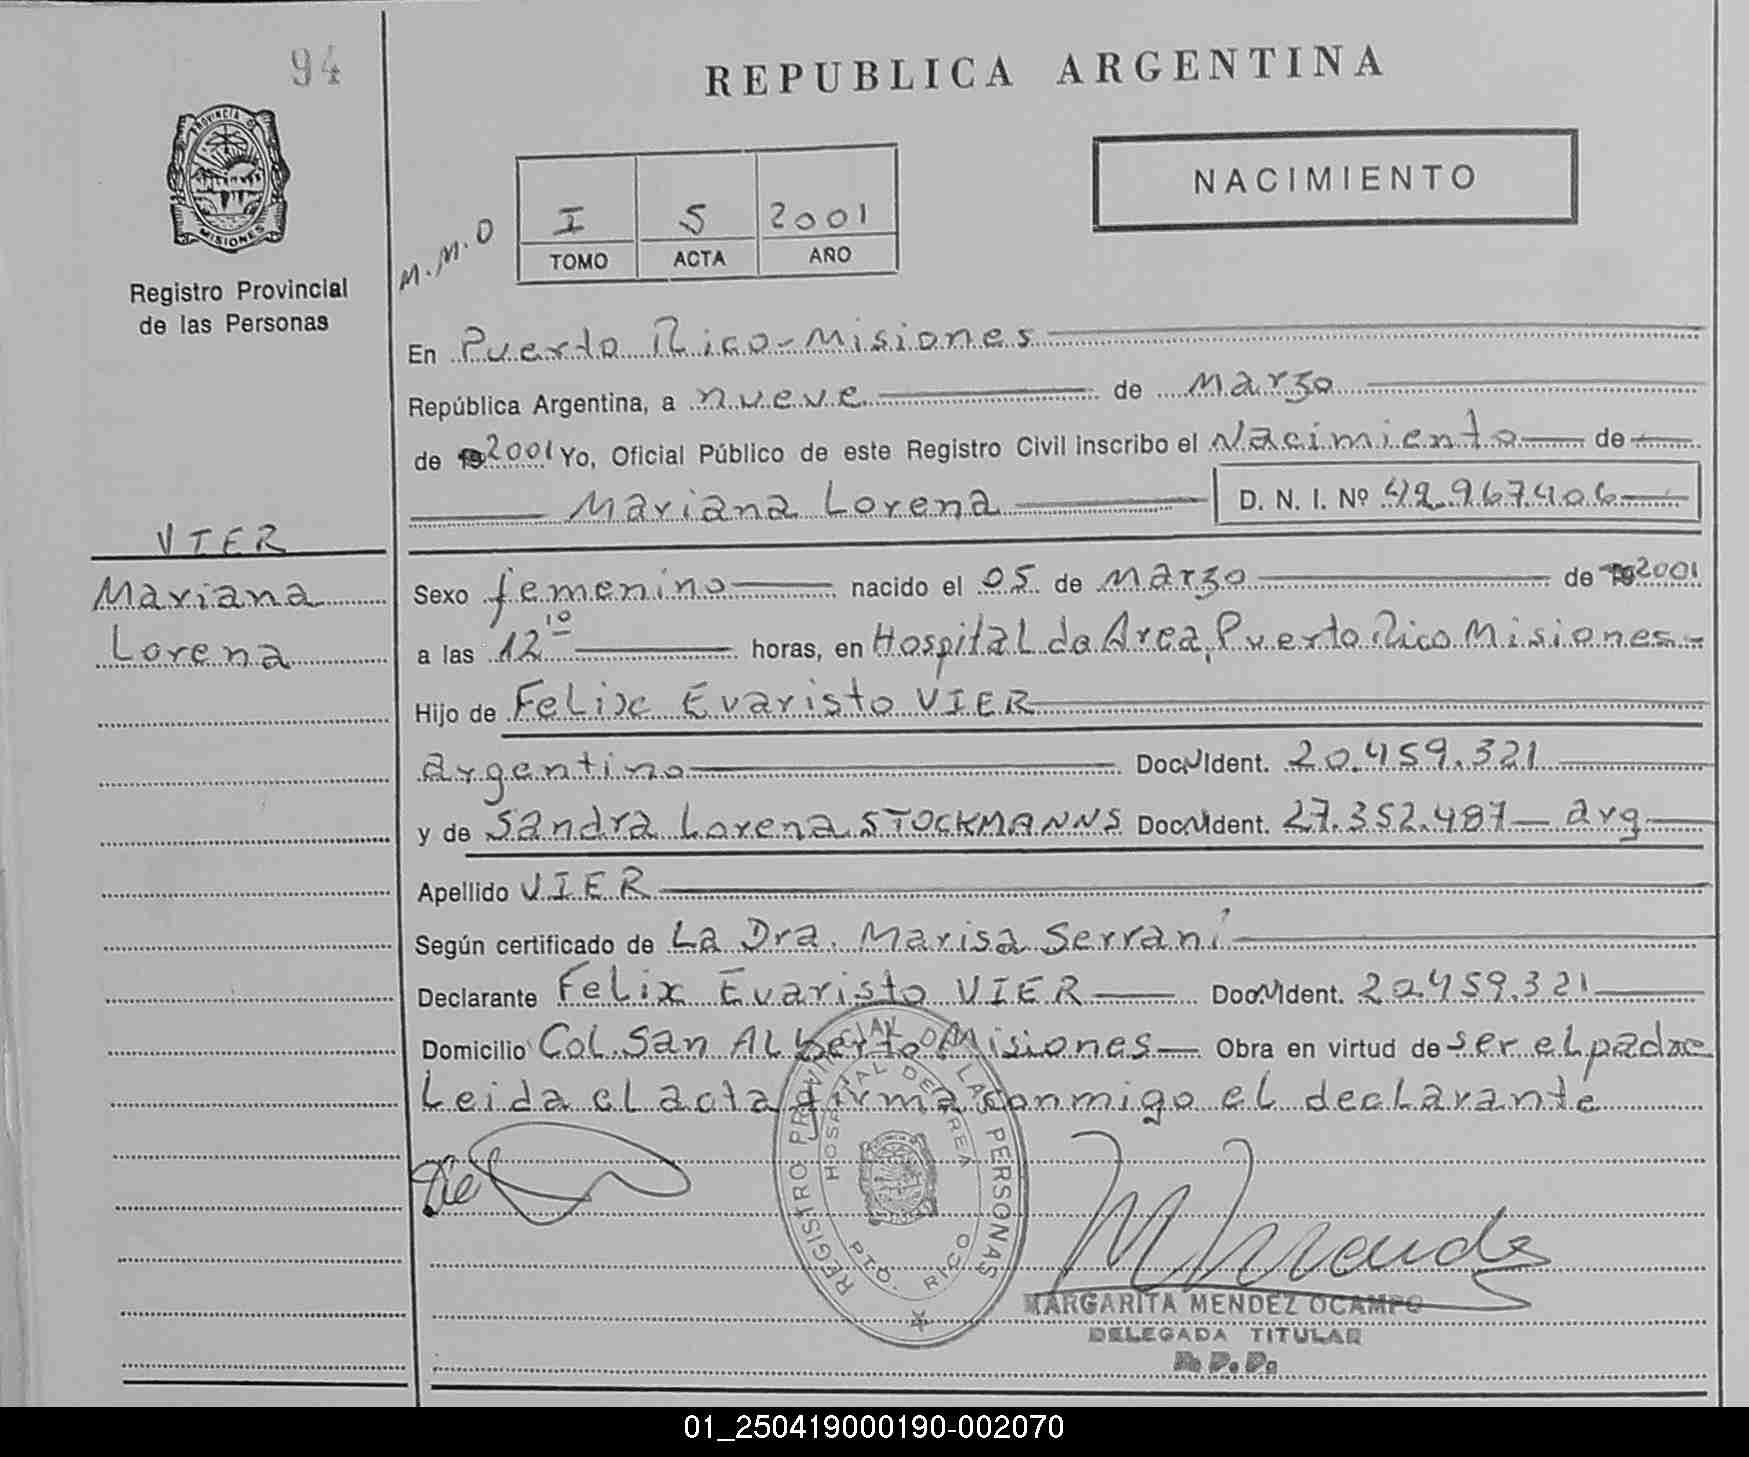 94
REPUBLICA ARGENTINA
PROVINCIA DE
MISIONES
Registro Provincial
de las Personas
NACIMIENTO
M.M.O
I 5 2001
TOMO ACTA AÑO
En Puerto Rico-Misiones
República Argentina, a nueve de Marzo
de 2001 Yo, Oficial Público de este Registro Civil inscribo el Nacimiento de
Mariana Lorena D. N. I. Nº 42.967406
VIER
Mariana
Lorena
Sexo femenino nacido el 05 de Marzo de 2001
a las 12 10 horas, en Hospital de Area, Puerto Rico Misiones
Hijo de Felix Evaristo VIER
argentino Doc Ident. 20.459.321
y de Sandra Lorena STOCKMANNS Doc Ident. 27.352.487 arg
Apellido VIER
Según certificado de La Dra. Marisa Serrani
Declarante Felix Evaristo VIER Doc Ident. 20.459.321
Domicilio Col. San Alberto Misiones Obra en virtud de ser el padre
Leida el acta firma conmigo el declarante
REGISTRO PROVINCIAL DE LAS PERSONAS
HOSPITAL DE AREA
PTO. RICO
MARGARITA MENDEZ OCAMPO
DELEGADA TITULAR
01_250419000190-002070